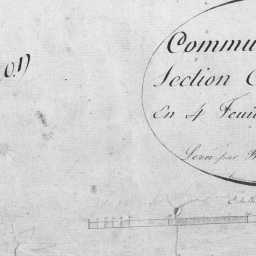 O.1)
Commu
Section C
En 4 Feui
Levé par